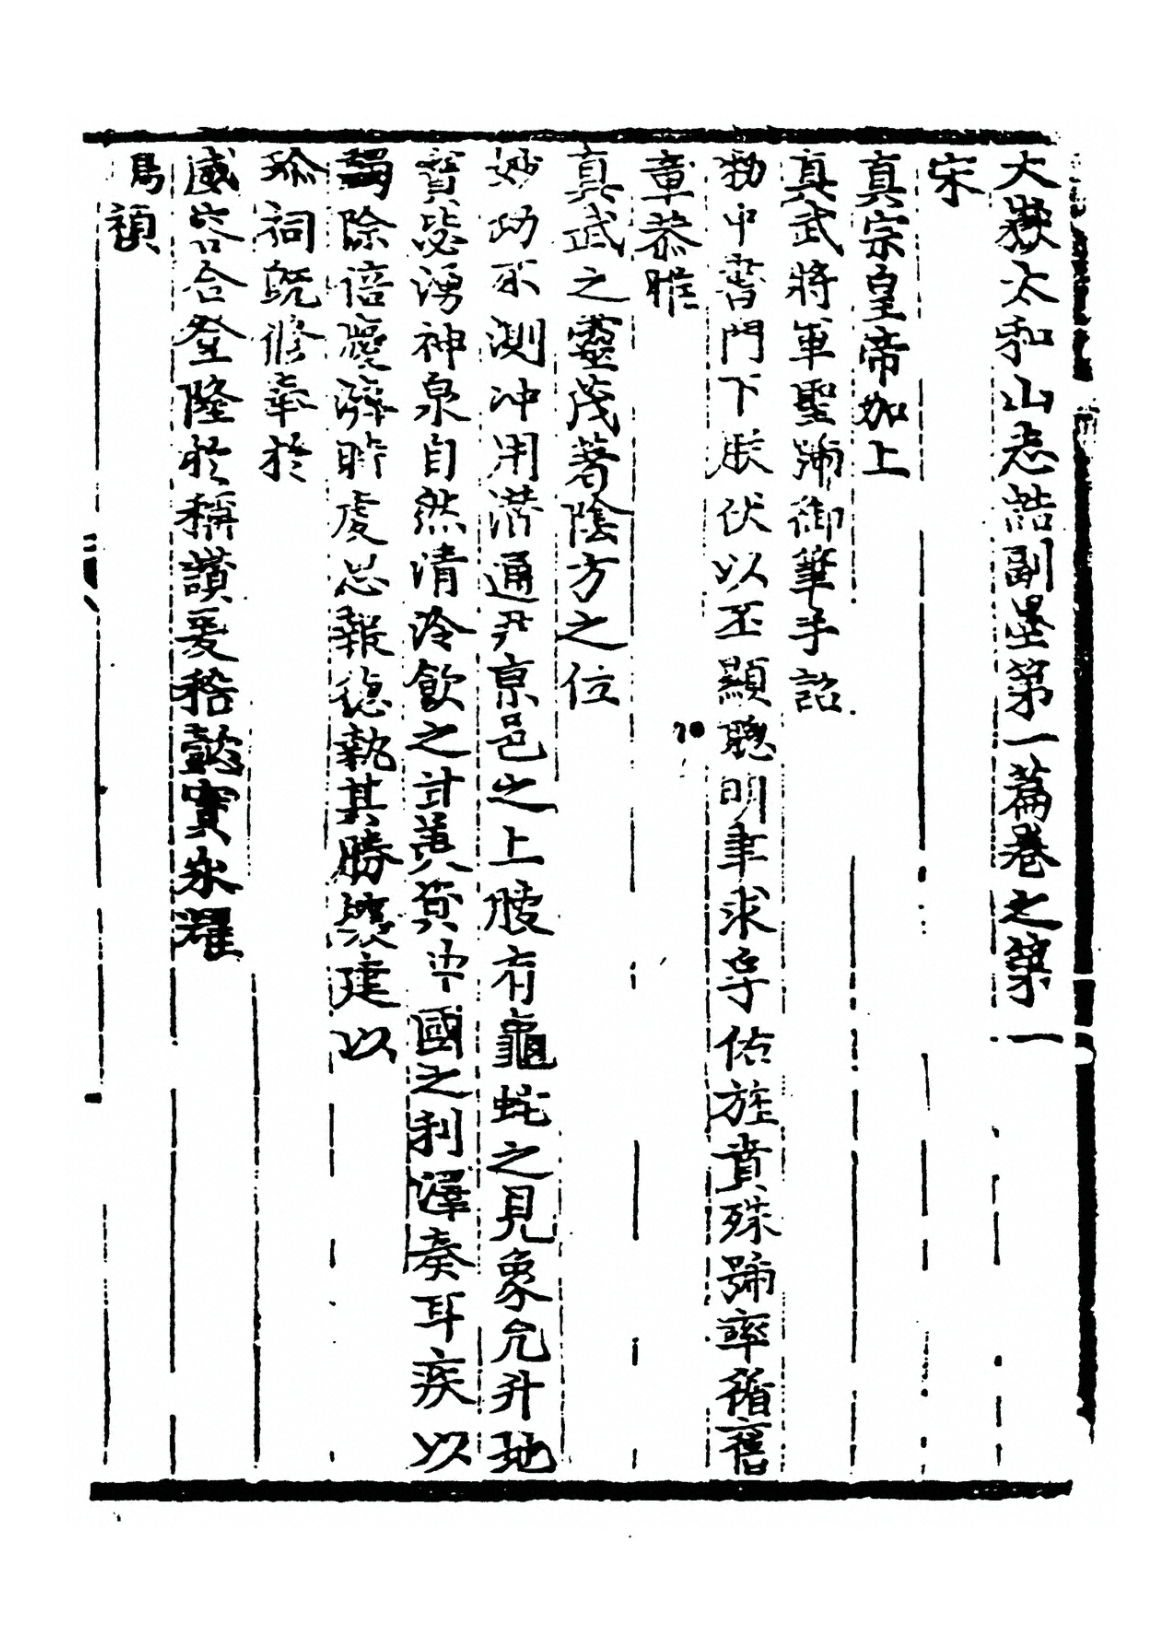 大嶽太和山志誥副墨第一篇卷之第一
宋
真宗皇帝加上
真武將軍聖號御筆手詔
勑中書門下朕伏以丕顯聰明聿求孚佑旌賁殊號率循舊
章恭惟
真武之靈茂著陰方之位
妙功不測沖用潛通尹京邑之上腴有龜虵之見象允升地
寶毖湧神泉自然清泠飲之甘美資中國之利澤奏耳疾以
蠲除倍慶濟時虔思報德執其勝壤建以
珍祠旣修奉於
威容合登隆於稱讚爰稽懿實永耀
鳥
禎